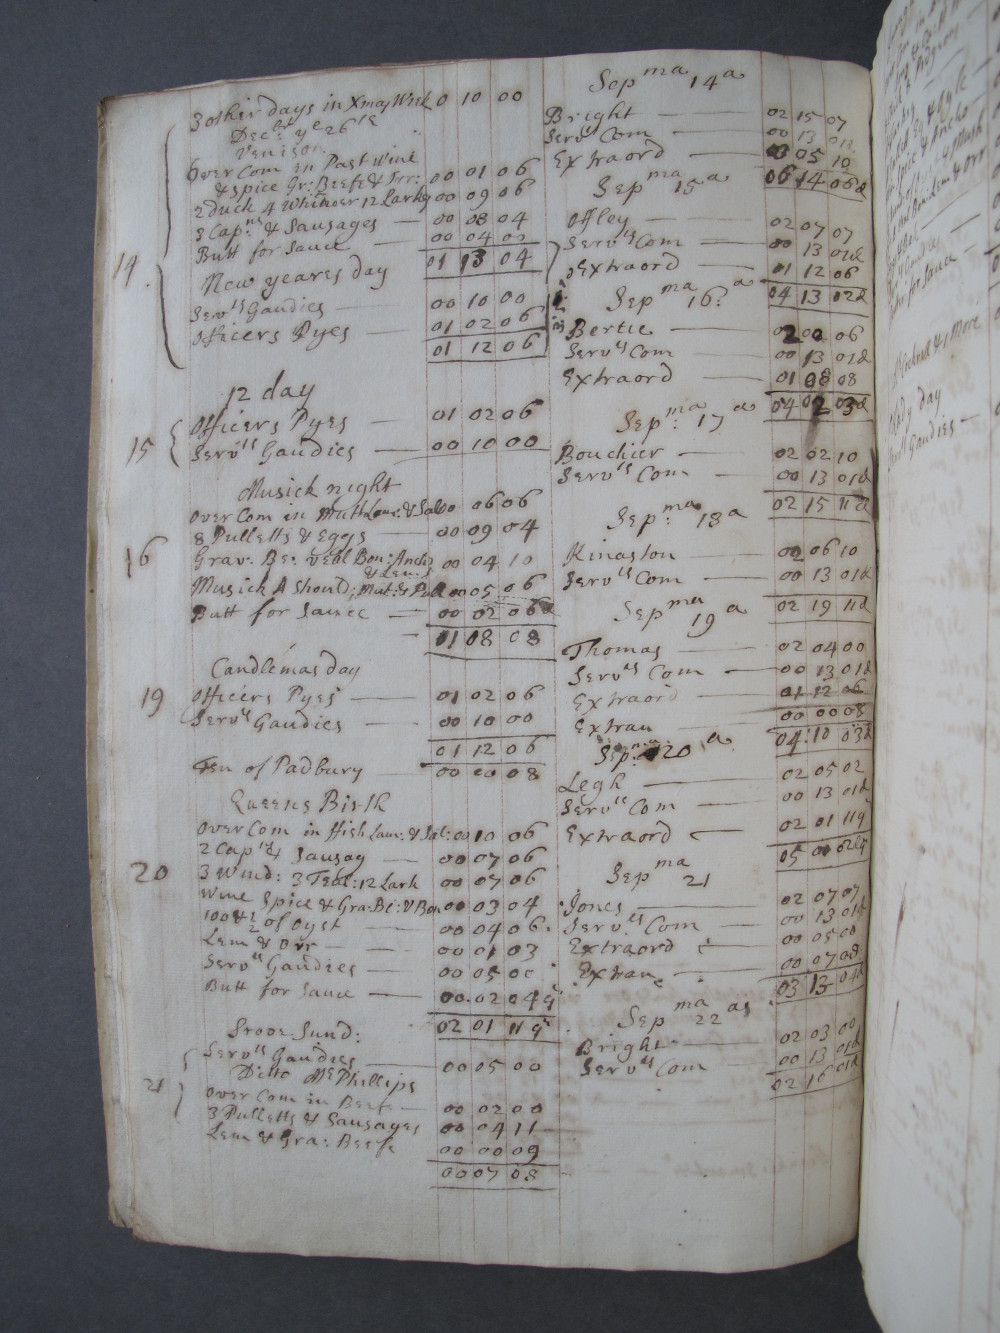 3 other days in Xmas Week 0 10 00
Decr. ye 26th
Venison
Over Com in Past Wine
& spice Gr: Beefe & Orr: 00 01 06
2 Duck 4 Whitnoer 12 Larks 00 09 06
3 Capns & Sausages 00 08 04
Butt for Sauce 00 04 00
14 01 13 04
New yeares day
Servts Gaudies 00 10 00
Officers Pyes 01 02 06
01 12 06
12 day
Officers Pyes 01 02 06
15 Servts Gaudies 00 10 00
Musick night
Over Com in Mutt Lam: & Sal 00 06 06
8 Pulletts & Eggs 00 09 04
16 Grav. Be: Vebl Bon: Ancho
& Lem. 00 04 10
Musick A Should: Mut: & Pull 00 05 06
Butt for Sauce 00 02 06
01 08 08
Candlemas day
19 Officers Pyes 01 02 06
Servts Gaudies 00 10 00
01 12 06
Ten of Padbury 00 00 08
Queens Birth
Over Com in ffish Lam: & Sal: 00 10 06
2 Capns & Sausag 00 07 06
20 3 Wind: 3 Teal: 12 Lark 00 07 06
Wine Spice & Gra: Be: V Bon 00 03 04
100 & ½ of Oyst 00 04 06
Lem & Orr 00 01 03
Servts Gaudies 00 05 00
Butt for Sauce 00 02 04 q
02 01 11 q
Srove Sund:
Servts Gaudies 00 05 00
Ditto Mr Phillips
21 Over Com in Beef 00 02 00
3 Pulletts & Sausages 00 04 11
Lem & Gra: Beefe 00 00 09
00 07 08
Sepma 14a
Bright 02 15 07
Servts Com 00 13 01d
Extraord 03 05 10
06 14 06d
Sepma 15a
Offley 02 07 07
Servts Com 00 13 01d
Extraord 01 12 06
04 13 02d
Sepma 16a
Bertie 2 00 06
Servts Com 00 13 01d
Extraord 01 08 08
04 02 03d
Sepma: 17a
Bouchier 02 02 10
Servts Com 00 13 01d
02 15 11d
Sepma: 18a
Kinaston 02 06 10
Servts Com 00 13 01d
02 19 11d
Sepma 19a
Thomas 02 04 00
Servts Com 00 13 01d
Extraord 01 12 06
Extran 00 00 08
04 10 03d
Sepma 20a
Legh 02 05 02
Servts Com 00 13 01d
Extraord 02 01 11q
05 00 02
Sepma 21
Jones 02 07 07
Servts Com 00 13 01d
Extraord 00 05 00
Extran 00 07 08
03 13 04d
Sepma 22as
Bright 02 03 00
Servts Com 00 13 01d
02 16 01d
day
Servts Gaudies